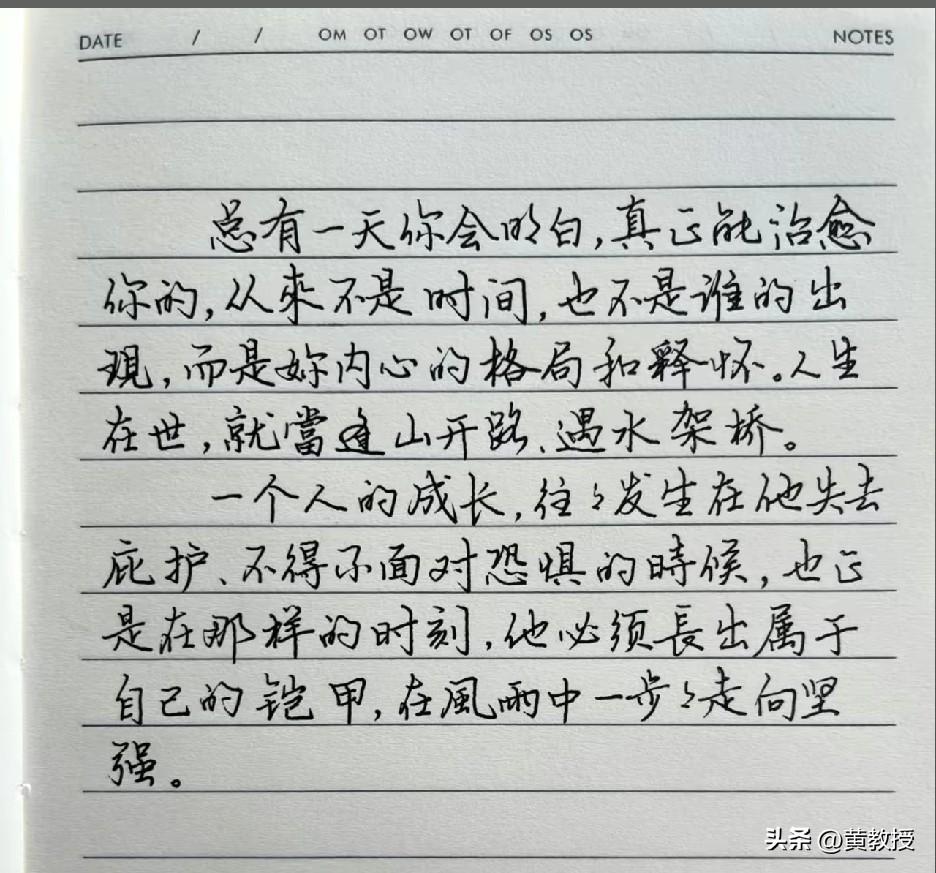 DATE / / OM OT OW OT OF OS OS NOTES
总有一天你会明白,真正能治愈
你的,从來不是时间,也不是谁的出
現,而是妳内心的格局和释怀。人生
在世,就當逢山开路、遇水架桥。
一个人的成长,往々发生在他失去
庇护、不得不面对恐惧的時候,也正
是在那样的时刻,他必须長出属于
自己的铠甲,在風雨中一步々走向坚
强。
头条 @黄教授